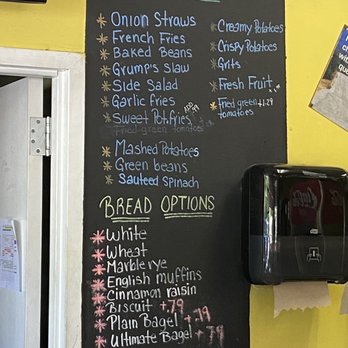 * Onion Straws
* French Fries
* Baked Beans
* Grump's Slaw
* Side Salad
* Garlic fries
* Sweet Pot. fries ADD
Fried green tomatoes
* Mashed Potatoes
* Green beans
* Sauteed Spinach
* Creamy Potatoes
* Crispy Potatoes
* Grits
* Fresh Fruit
* Fried green +1.29
tomatoes
BREAD OPTIONS
* White
* Wheat
* Marble rye
* English muffins
* Cinnamon raisin
* Biscuit +.79
* Plain Bagel +.79
* Ultimate Bagel +.79